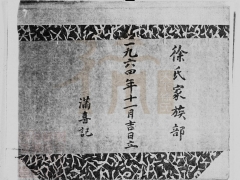 徐氏家族部
一九六四年十一月吉日立
满喜記